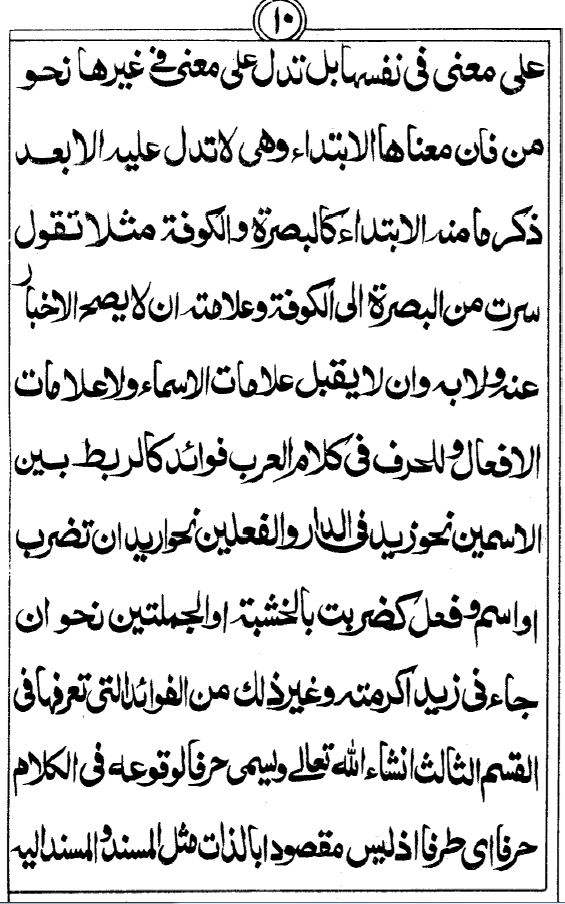 ١٠
على معنى فى نفسها بل تدل على معنى فے غيرها نحو
من فان معناها الابتداء وهى لا تدل عليه الا بعد
ذكر ما منه الابتداء كالبصرة والكوفة مثلا تقول
سرت من البصرة الى الكوفة وعلامته ان لا يصح الاخبار
عنه ولا به وان لا يقبل علامات الاسماء ولا علامات
الافعال وللحرف فى كلام العرب فوائد كالربط بين
الاسمين نحو زيد فى الدار والفعلين نحو اريد ان تضرب
او اسم وفعل كضربت بالخشبة او الجملتين نحو ان
جاءنى زيد اكرمته وغير ذلك من الفوائد التى تعرفها فى
القسم الثالث انشاء الله تعالے ويسمى حرفا لوقوعه فى الكلام
حرفا اى طرفا اذ ليس مقصودا بالذات مثل المسند والمسند اليه